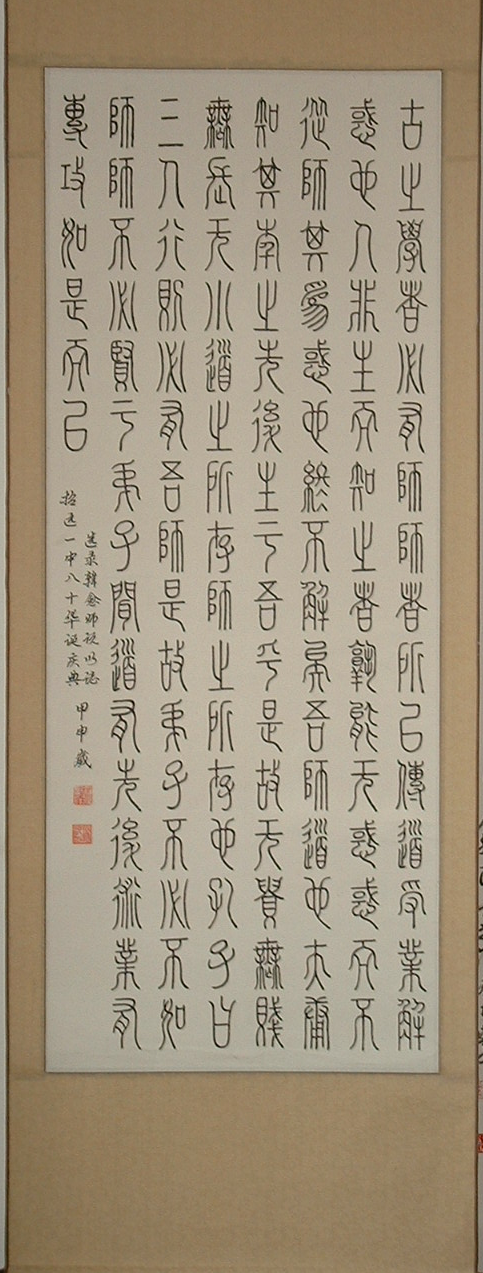 古之學者必有師師者所以傳道受業解
惑也人非生而知之者孰能无惑惑而不
從師其為惑也終不解矣吾師道也夫庸
知其年之先後生于吾乎是故无貴無賤
無長无少道之所存師之所存也孔子曰
三人行則必有吾師是故弟子不必不如
師師不必賢于弟子聞道有先後術業有
專攻如是而已
选录韓愈师说以誌
招远一中八十华诞庆典
甲申歲